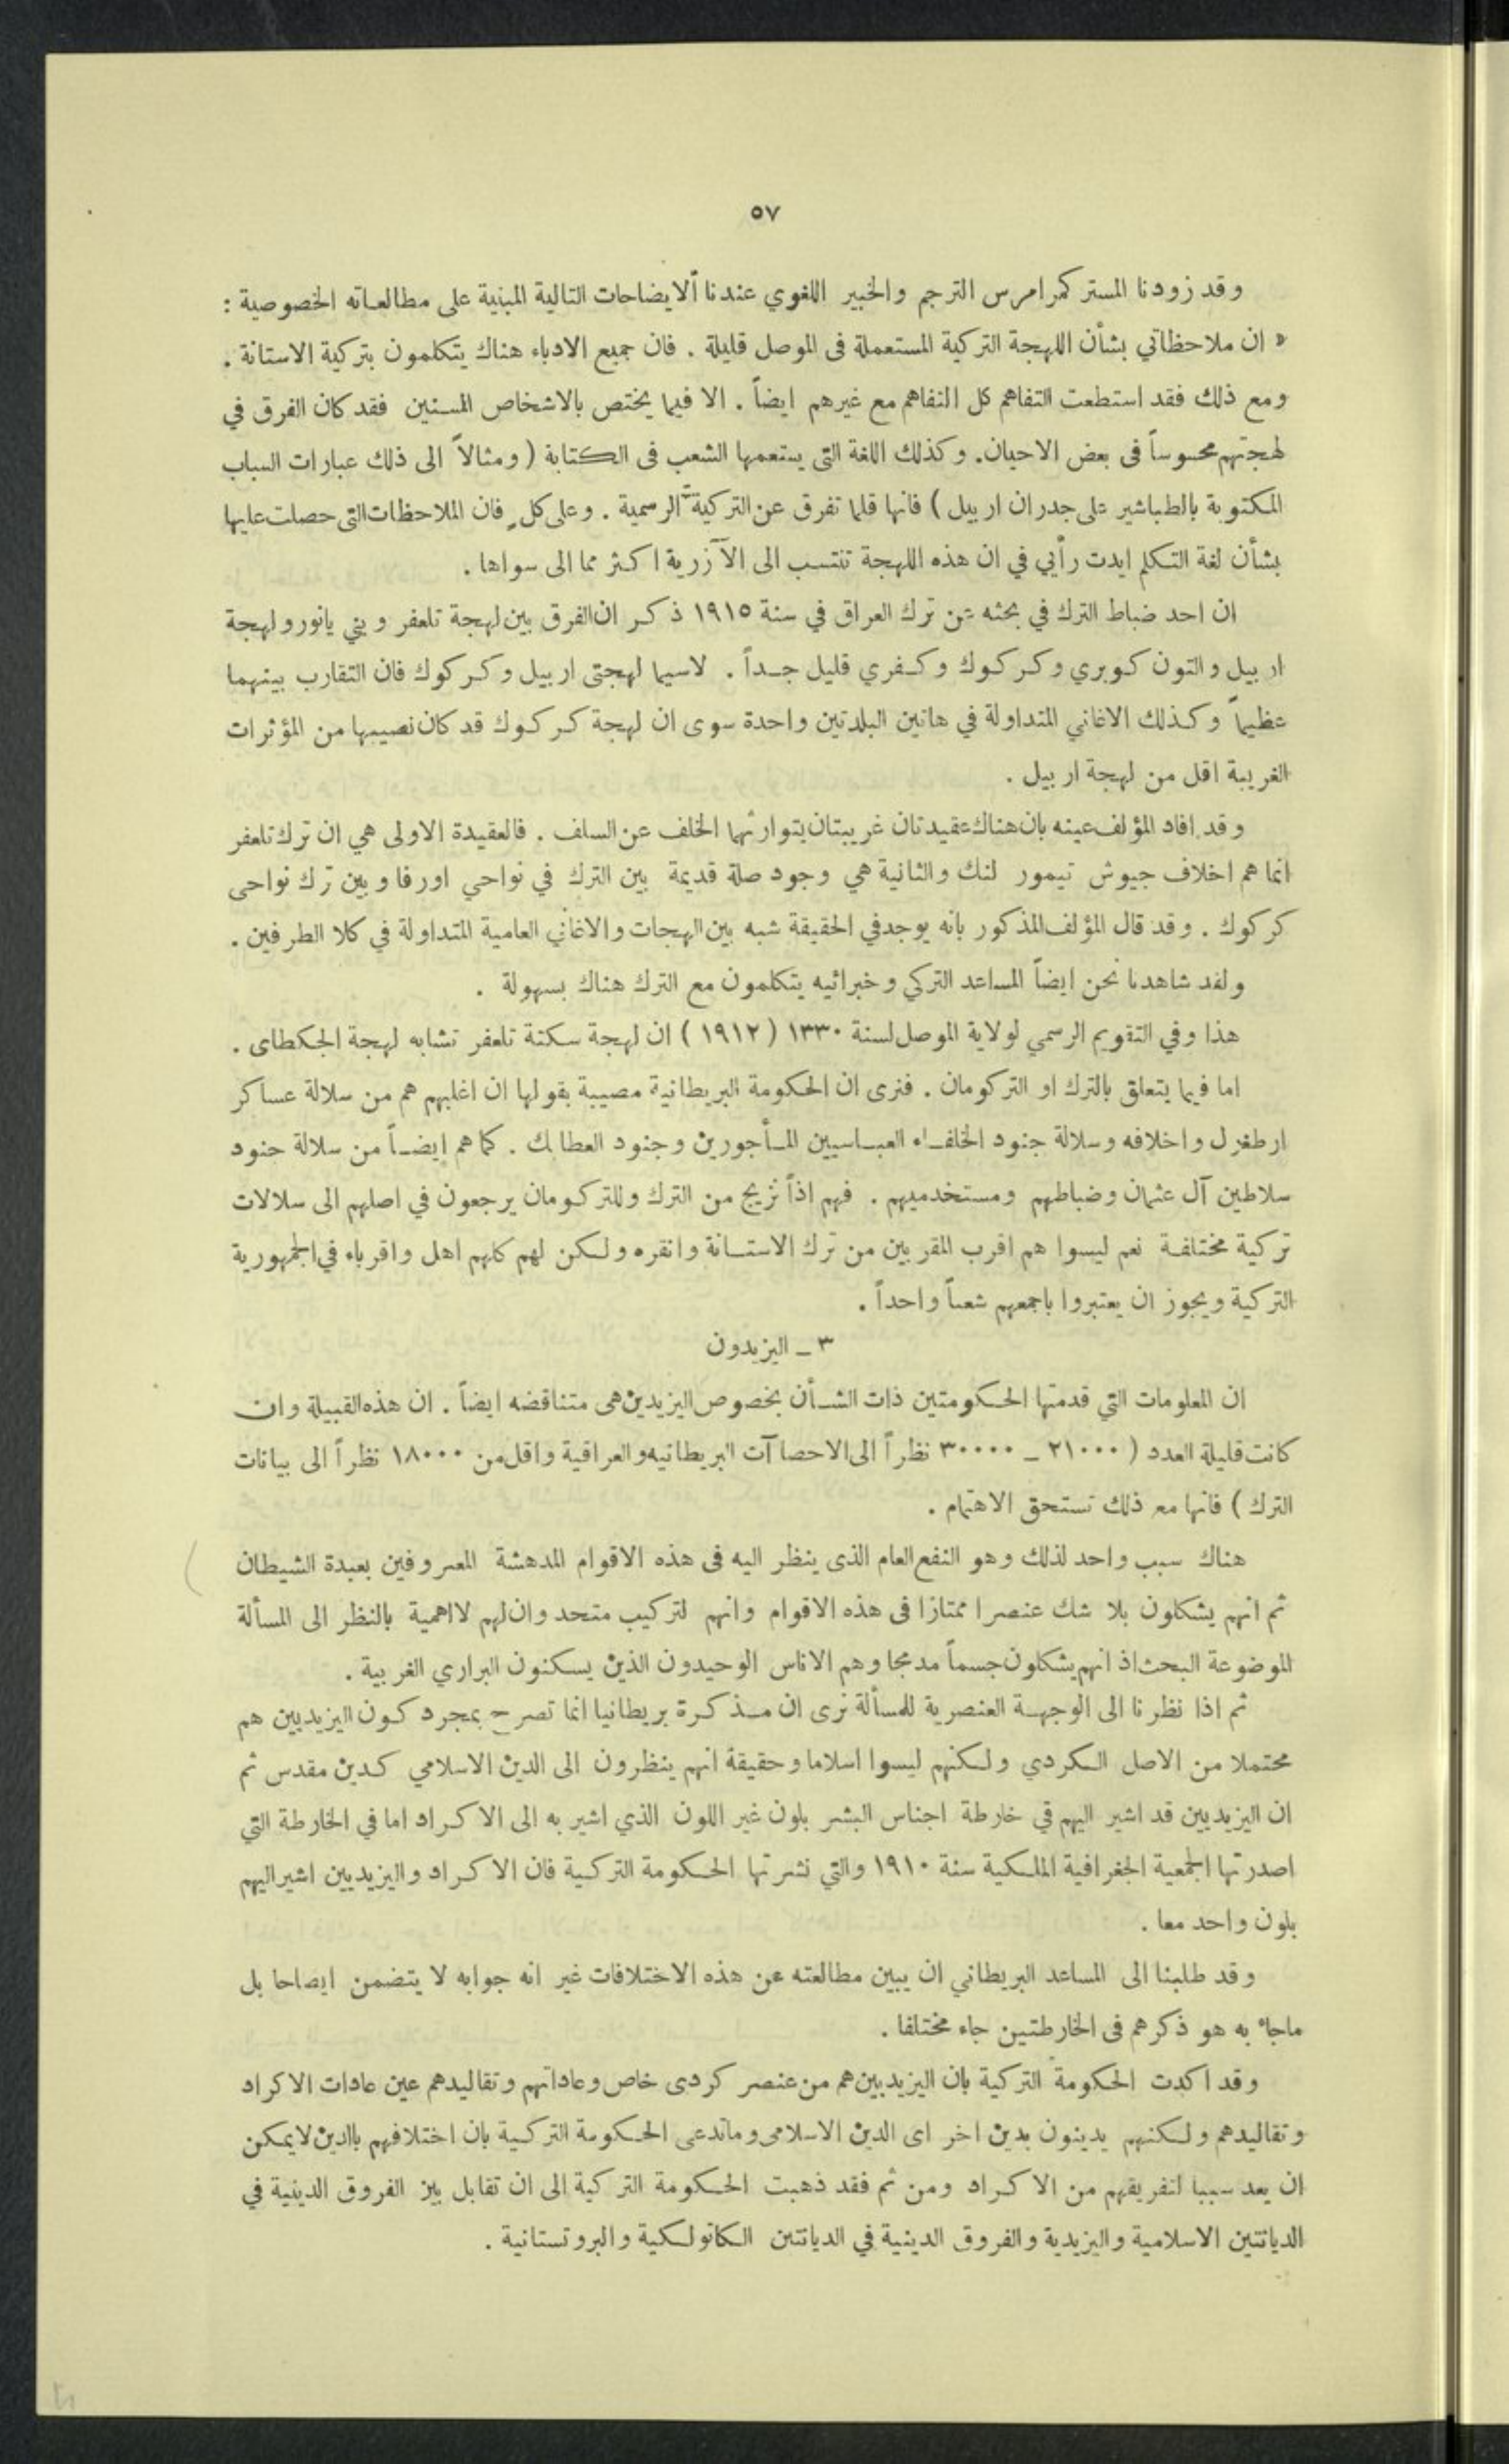 ٥٧
وقد زودنا المستر كمرامرس الترجم والخبير اللغوي عندنا ألايضاحات التالية المبنية على مطالعاته الخصوصية :
« ان ملاحظاتي بشأن اللهجة التركية المستعملة فى الموصل قليلة . فان جميع الادباء هناك يتكلمون بتركية الاستانة .
ومع ذلك فقد استطعت التفاهم كل التفاهم مع غيرهم ايضاً . الا فيما يختص بالاشخاص المسنين فقد كان الفرق في
لهجتهم محسوساً فى بعض الاحيان. وكذلك اللغة التى يستعمها الشعب فى الكتابة ( ومثالاً الى ذلك عبارات السباب
المكتوبة بالطباشير على جدران اربيل ) فانها قلما تفرق عن التركية الرسمية . وعلى كل ٍ فان الملاحظات التى حصلت عليها
بشأن لغة التكلم ايدت رأيي في ان هذه اللهجة تنتسب الى الآزرية اكثر مما الى سواها .
ان احد ضباط الترك في بحثه عن ترك العراق في سنة ١٩١٥ ذكر ان الفرق بين لهجة تلعفر ويني يانور ولهجة
اربيل والتون كوبري وكركوك وكفري قليل جداً . لاسيما لهجتى اربيل وكركوك فان التقارب بينهما
عظيماً وكذلك الاغاني المتداولة في هاتين البلدتين واحدة سوى ان لهجة كركوك قد كان نصيبها من المؤثرات
الغريبة اقل من لهجة اربيل .
وقد افاد المؤلف عينه بان هناك عقيدتان غريبتان يتوارثها الخلف عن السلف . فالعقيدة الاولى هي ان ترك تلعفر
انما هم اخلاف جيوش تيمور لنك والثانية هي وجود صلة قديمة بين الترك في نواحي اورفا وبين ترك نواحى
كركوك . وقد قال المؤلف المذكور بانه يوجد في الحقيقة شبه بين الهجات والاغاني العامية المتداولة في كلا الطرفين .
ولقد شاهدنا نحن ايضاً المساعد التركي وخبرائيه يتكلمون مع الترك هناك بسهولة .
هذا وفي التقويم الرسمي لولاية الموصل لسنة ١٣٣٠ ( ١٩١٢ ) ان لهجة سكنة تلعفر تشابه لهجة الجكطاى .
اما فيما يتعلق بالترك او التركومان . فنرى ان الحكومة البريطانية مصيبة بقولها ان اغلبهم هم من سلالة عساكر
ارطغرل واخلافه وسلالة جنود الخلفاء العباسيين المأجورين وجنود العطابك . كما هم ايضاً من سلالة جنود
سلاطين آل عثمان وضباطهم ومستخدميهم . فهم اذاً نزيج من الترك وللتركومان يرجعون في اصلهم الى سلالات
تركية مختلفة نعم ليسوا هم اقرب المقربين من ترك الاستانة وانقره ولكن لهم كلهم اهل واقرباء في الجمهورية
التركية ويجوز ان يعتبروا باجمعهم شعباً واحداً .
٣ ــ اليزيدون
ان المعلومات التي قدمتها الحكومتين ذات الشأن بخصوص اليزيدين هى متناقضه ايضاً . ان هذه القبيلة وان
كانت قليلة العدد ( ٢١٠٠٠ ــ ٣٠٠٠٠ نظراً الى الاحصاآت البريطانيه والعراقية واقل من ١٨٠٠٠ نظراً الى بيانات
الترك ) فانها مع ذلك تستحق الاهتمام .
هناك سبب واحد لذلك وهو النفع العام الذى ينظر اليه فى هذه الاقوام المدهشة المعروفين بعبدة الشيطان
ثم انهم يشكلون بلا شك عنصرا ممتازا فى هذه الاقوام وانهم لتركيب متحد وان لهم لااهمية بالنظر الى المسألة
الموضوعة البحث اذ انهم يشكلون جسماً مدمجا وهم الاناس الوحيدون الذين يسكنون البراري الغربية .
ثم اذا نظرنا الى الوجهة العنصرية للمسألة نرى ان مذكرة بريطانيا انما تصرح بمجرد كون اليزيديين هم
محتملا من الاصل الكردي ولكنهم ليسوا اسلاما وحقيقة انهم ينظرون الى الدين الاسلامي كدين مقدس ثم
ان اليزيديين قد اشير اليهم في خارطة اجناس البشر بلون غير اللون الذي اشير به الى الاكراد اما في الخارطة التي
اصدرتها الجمعية الجغرافية الملكية سنة ١٩١٠ والتي نشرتها الحكومة التركية فان الاكراد واليزيديين اشير اليهم
بلون واحد معا .
وقد طلبنا الى المساعد البريطاني ان يبين مطالعته عن هذه الاختلافات غير انه جوابه لا يتضمن ايضاحا بل
ماجاء به هو ذكرهم فى الخارطتين جاء مختلفا .
وقد اكدت الحكومة التركية بان اليزيديين هم من عنصر كردى خاص وعاداتهم وتقاليدهم عين عادات الاكراد
وتقاليدهم ولكنهم يدينون بدين اخر اى الدين الاسلامى وماتدعى الحكومة التركية بان اختلافهم بالدين لايمكن
ان يعد سببا لتفريقهم من الاكراد ومن ثم فقد ذهبت الحكومة التركية الى ان تقابل بين الفروق الدينية في
الديانتين الاسلامية واليزيدية والفروق الدينية في الديانتين الكاتولكية والبروتستانية .